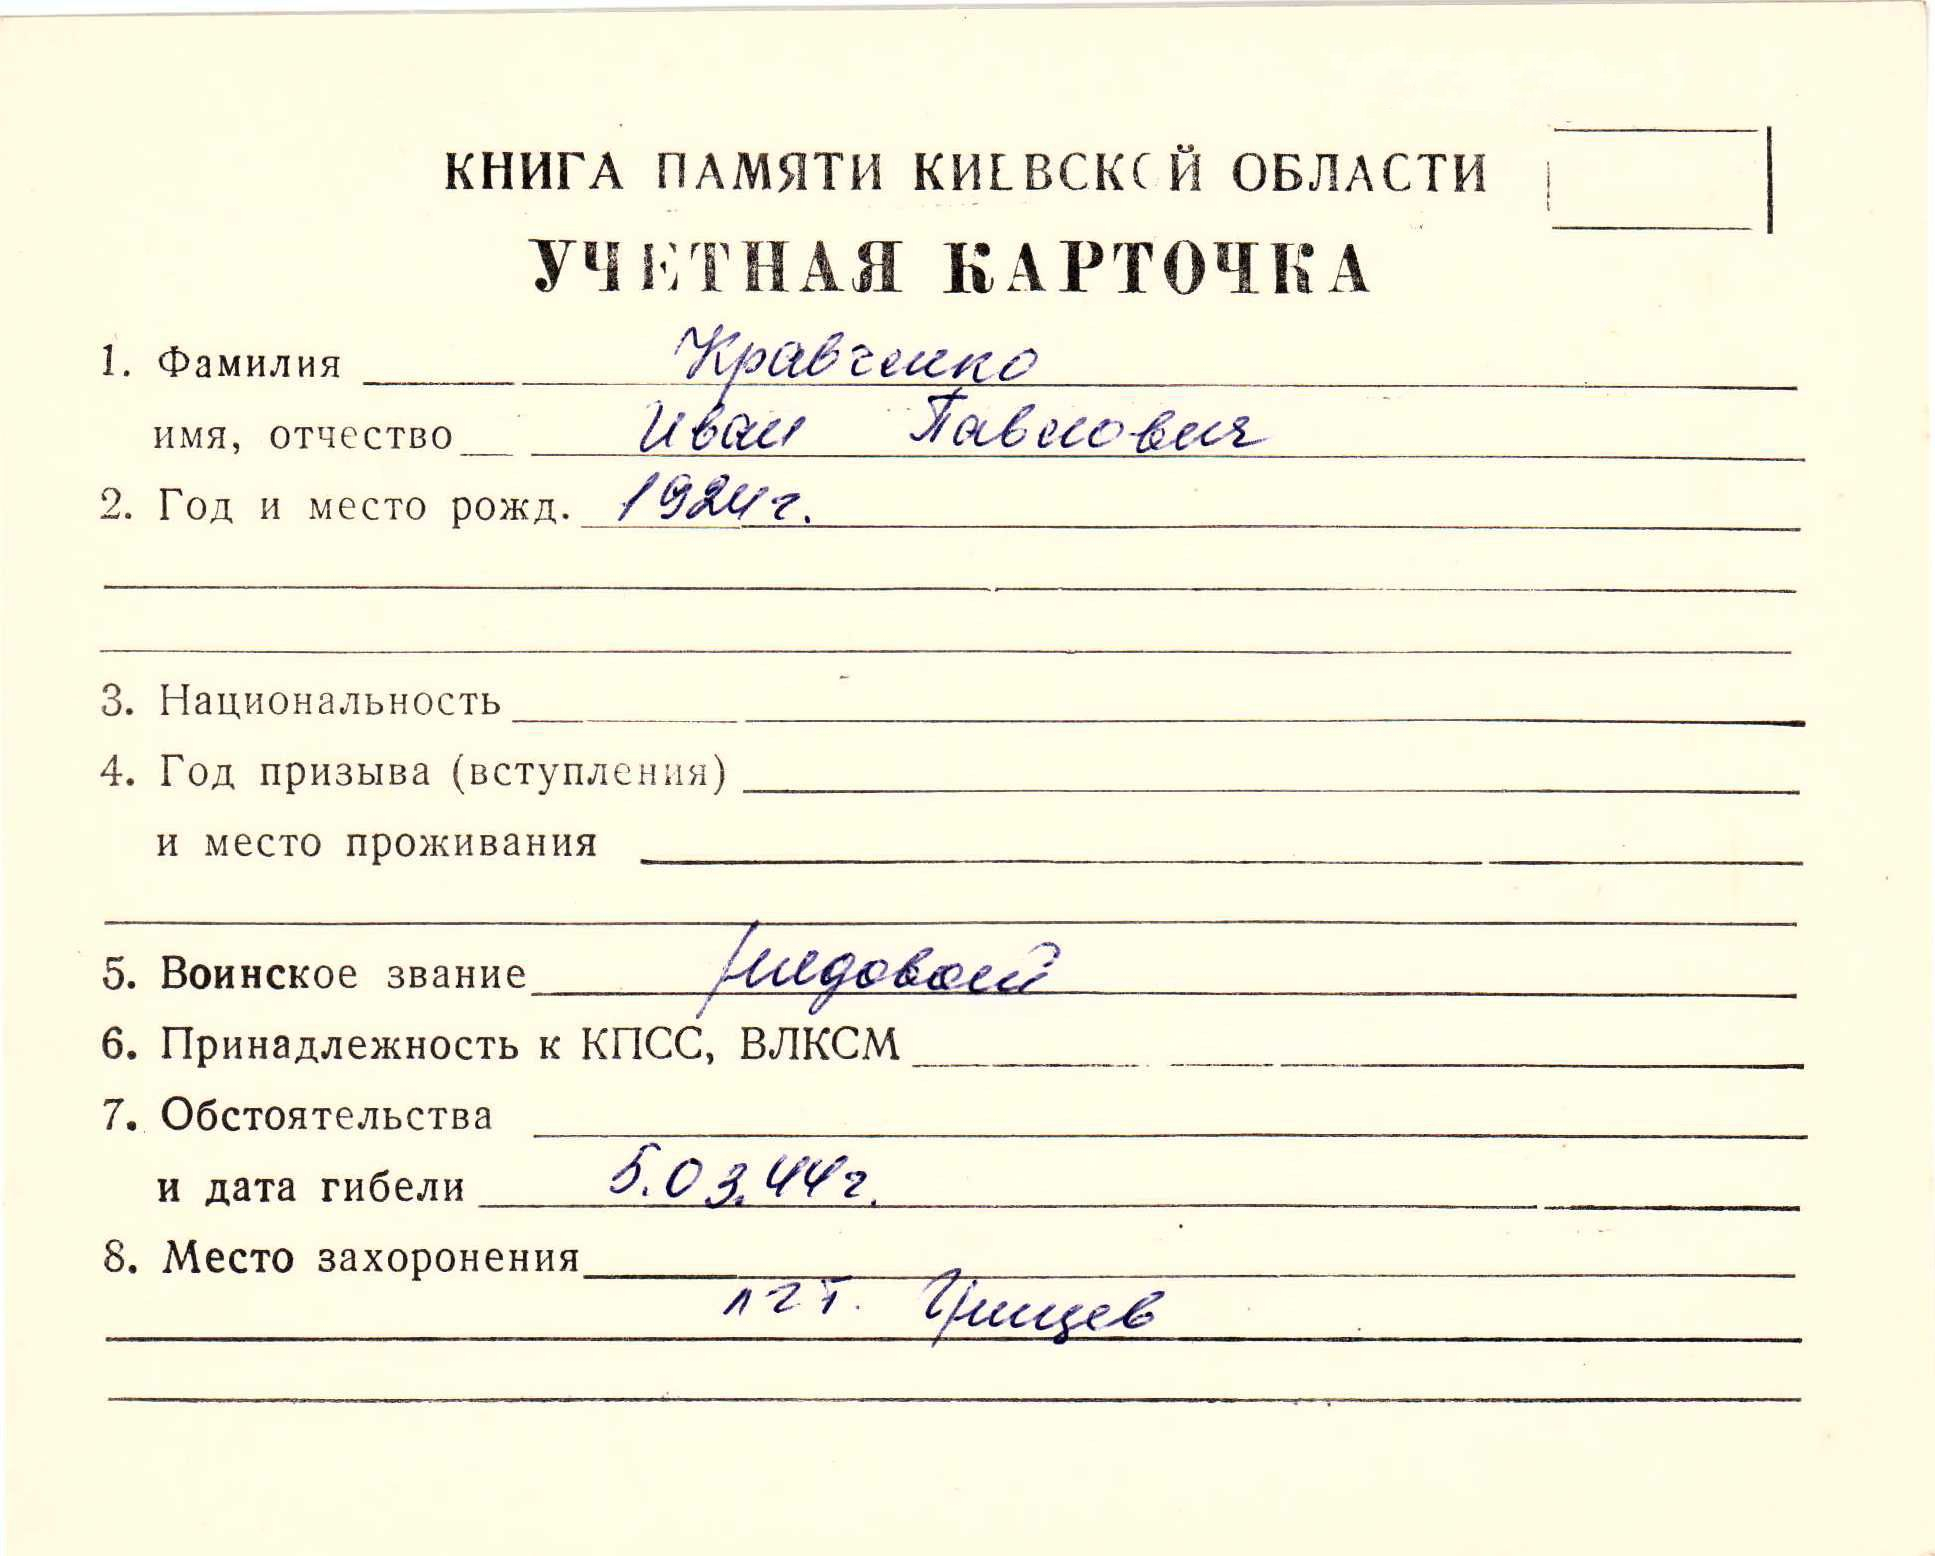 КНИГА ПАМЯТИ КИЕВСКОЙ ОБЛАСТИ
УЧЕТНАЯ КАРТОЧКА
1. Фамилия Кравченко
имя, отчество Иван Павлович
2. Год и место рожд. 1924г.
3. Национальность
4. Год призыва (вступления)
и место проживания
5. Воинское звание рядовой
6. Принадлежность к КПСС, ВЛКСМ
7. Обстоятельства
и дата гибели 5.03.44г.
8. Место захоронения
пгт. Грицев